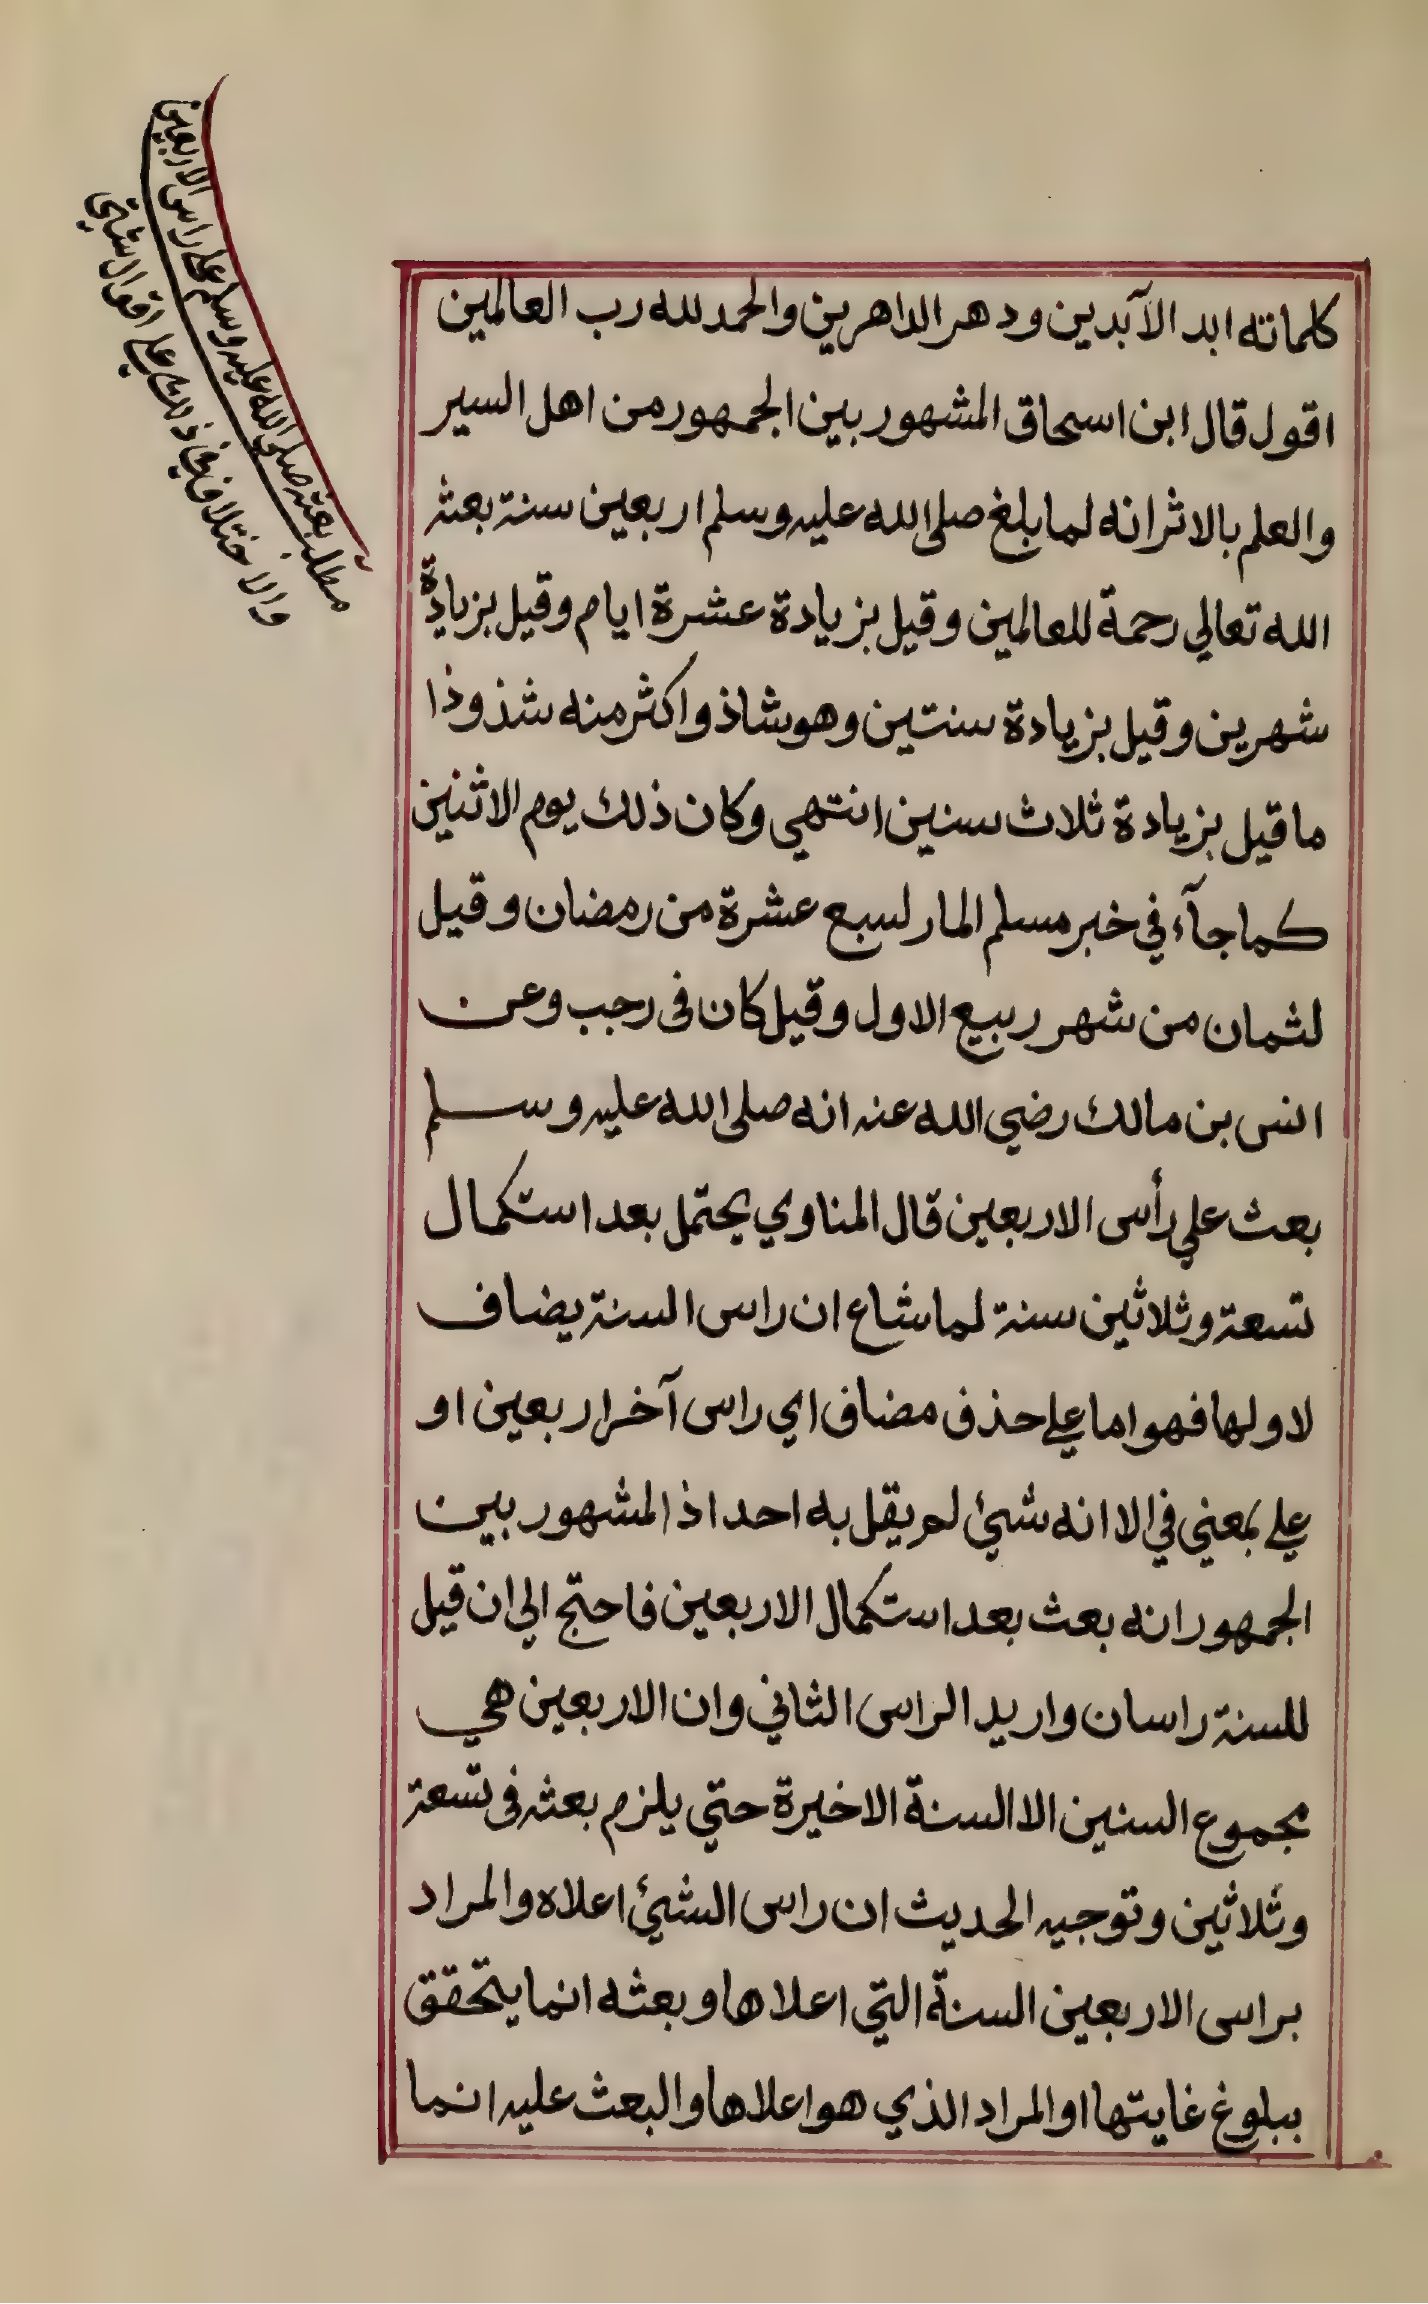 كلماته ابد الآبدين ودهر الداهرين والحمد لله رب العالمين
اقول قال ابن اسحاق المشهور بين الجمهور من اهل السير
والعلم بالاثر انه لما بلغ صلى الله عليه وسلم اربعين سنة بعثه
الله تعالي رحمة للعالمين وقيل بزيادة عشرة ايام وقيل بزيادة
شهرين وقيل بزيادة سنتين وهو شاذ واكثر منه شذوذا
ما قيل بزيادة ثلاث سنين انتهي وكان ذلك يوم الاثنين
كما جآء في خبر مسلم المار لسبع عشرة من رمضان وقيل
لثمان من شهر ربيع الاول وقيل كان فى رجب وعن
انس بن مالك رضي الله عنه انه صلى الله عليه وسلم
بعث علي رأس الاربعين قال المناوي يحتمل بعد استكمال
تسعة وثلاثين سنة لما شاع ان راس السنة يضاف
لاولها فهو اما علي حذف مضاف اي راس آخر اربعين او
علي بمعني في الا انه شئ لم يقل به احد اذ المشهور بين
الجمهور انه بعث بعد استكمال الاربعين فاحتج الي ان قيل
للسنة راسان واريد الراس الثاني وان الاربعين هي
مجموع السنين الا السنة الاخيرة حتي يلزم بعثه فى تسعة
وثلاثين وتوجيه الحديث ان راس الشئ اعلاه والمراد
براس الاربعين السنة التي اعلاها وبعثه انما يتحقق
ببلوغ غايتها او المراد الذي هو اعلاها والبعث عليه انما
مطلب بعثه صلى الله عليه وسلم علي راس الاربعين
والاختلاف في ذلك علي اقوال شتي